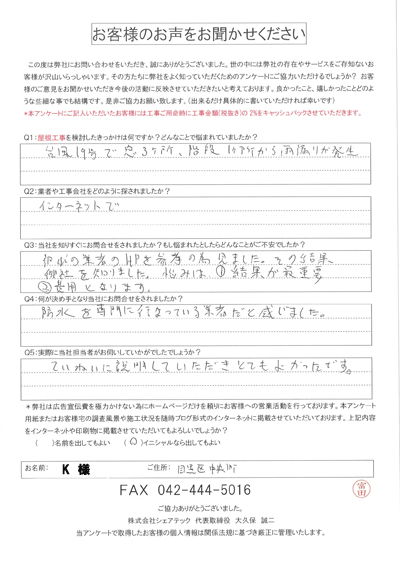 お客様のお声をお聞かせください
この度は弊社にお問い合わせをいただき、誠にありがとうございました。世の中には弊社の存在やサービスをご存知ないお
客様が沢山いらっしゃいます。その方たちに弊社をよく知っていただくためのアンケートにご協力いただけるでしょうか？ お客
様のご意見をお聞かせいただき今後の活動に反映させていただきたいと考えております。良かったこと、嬉しかったことどのよ
うな些細な事でも結構です。是非ご協力お願い致します。（出来るだけ具体的に書いていただければ幸いです）
*本アンケートにご記入いただいたお客様には工事ご用命時に工事金額(税抜き)の 2%をキャッシュバックさせていただきます。
Q1:屋根工事を検討したきっかけは何ですか？どんなことで悩まれていましたか？
台風19号で窓3ヶ所、階段1ヶ所から雨漏りが発生
Q2:業者や工事会社をどのように探されましたか？
インターネットで
Q3:当社を知りすぐにお問合せをされましたか？もし悩まれたとしたらどんなことがご不安でしたか？
何かの業者のHPを参考の為見ました。その結果
御社を知りました。悩みは、①結果が最重要
②費用となります。
Q4:何が決め手となり当社にお問合せをされましたか？
防水を専門に行なっている業者だと感じました。
Q5:実際に当社担当者がお伺いしていかがでしたでしょうか？
ていねいに説明していただきとてもよかったです。
*弊社は広告宣伝費を極力かけない為にホームページだけを頼りにお客様への営業活動を行っております。本アンケート
用紙またはお客様宅の調査風景や施工状況を随時ブログ形式のインターネットに掲載させていただいております。上記内容
をインターネットや印刷物に掲載させていただいてもよろしいでしょうか？
(　)名前を出してもよい　(○)イニシャルなら出してもよい
お名前: K 様　ご住所: 目黒区中央町
FAX 042-444-5016
富田
ご協力ありがとうございました。
株式会社シェアテック 代表取締役 大久保 誠二
当アンケートで取得したお客様の個人情報は関係法規に基づき厳正に管理いたします。